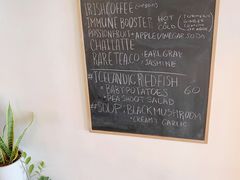 IRISH COFFEE (vegan)
IMMUNE BOOSTER HOT (TURMERIC
COLD GINGER
PASSIONFRUIT + APPLE VINEGAR SODA
CHAI LATTE
RARE TEA CO: EARL GRAY
JASMINE
#ICELANDIC REDFISH
• BABY POTATOES 60
• PEA SHOOT SALAD
#SOUP: BLACK MUSHROOM
• CREAMY GARLIC